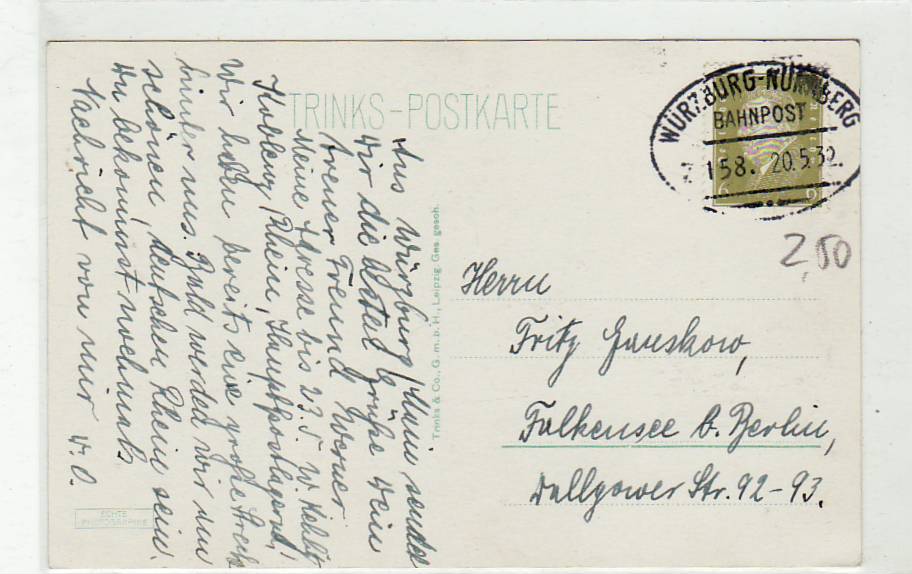 TRINKS-POSTKARTE
WÜRZBURG-NÜRNBERG
BAHNPOST
Z 158. 20.5.32.
6 6
2,50
Aus Würzburg/Main sendet
dir die besten Grüße dein
treuer Freund Werner
Meine Adresse bis 23.5. W.
Koblenz/Rhein, Hauptpostlagernd!
Wir haben bereits eine große Strecke
hinter uns. Bald werden wir am
schönen, deutschen Rhein sein.
du bekommst nochmals
Nachricht von mir d.O.
Trinks & Co., G.m.b.H., Leipzig. Ges. gesch.
Herrn
Fritz Gauskow,
Falkensee b. Berlin,
Dallgower Str. 92-93.
ECHTE
PHOTOGRAPHIE